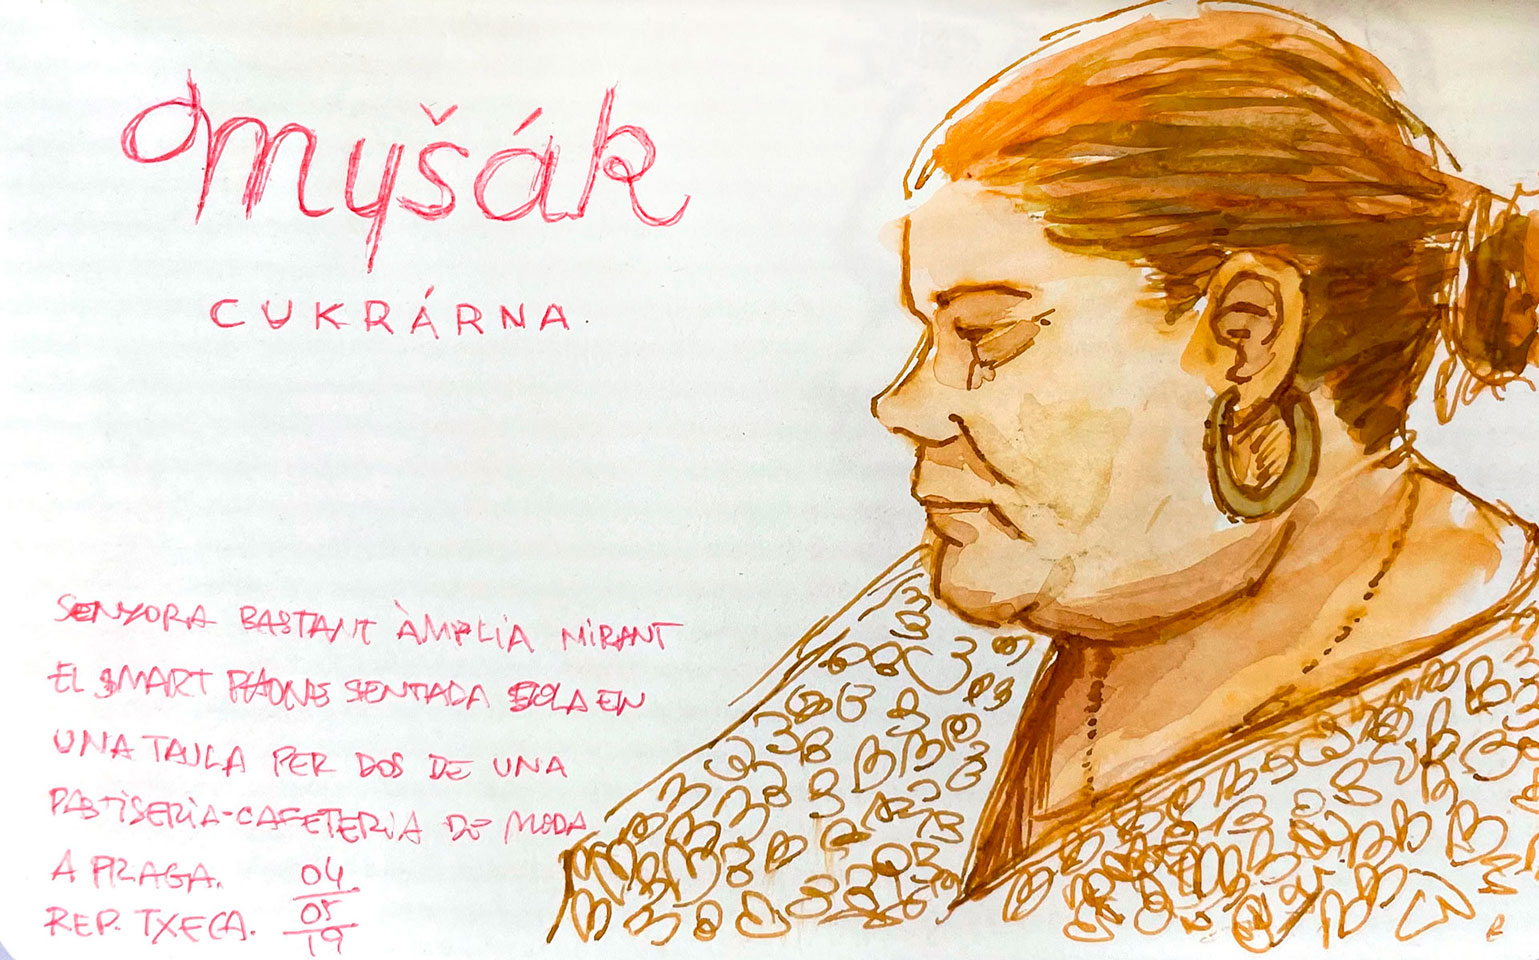 myšák
CUKRÁRNA.
SENYORA BASTANT ÀMPLIA MIRANT
EL SMART PHONE SENTADA SOLA EN
UNA TAULA PER DOS DE UNA
PASTISERIA-CAFETERIA DE MODA
A PRAGA. 04
REP. TXECA. 05
19